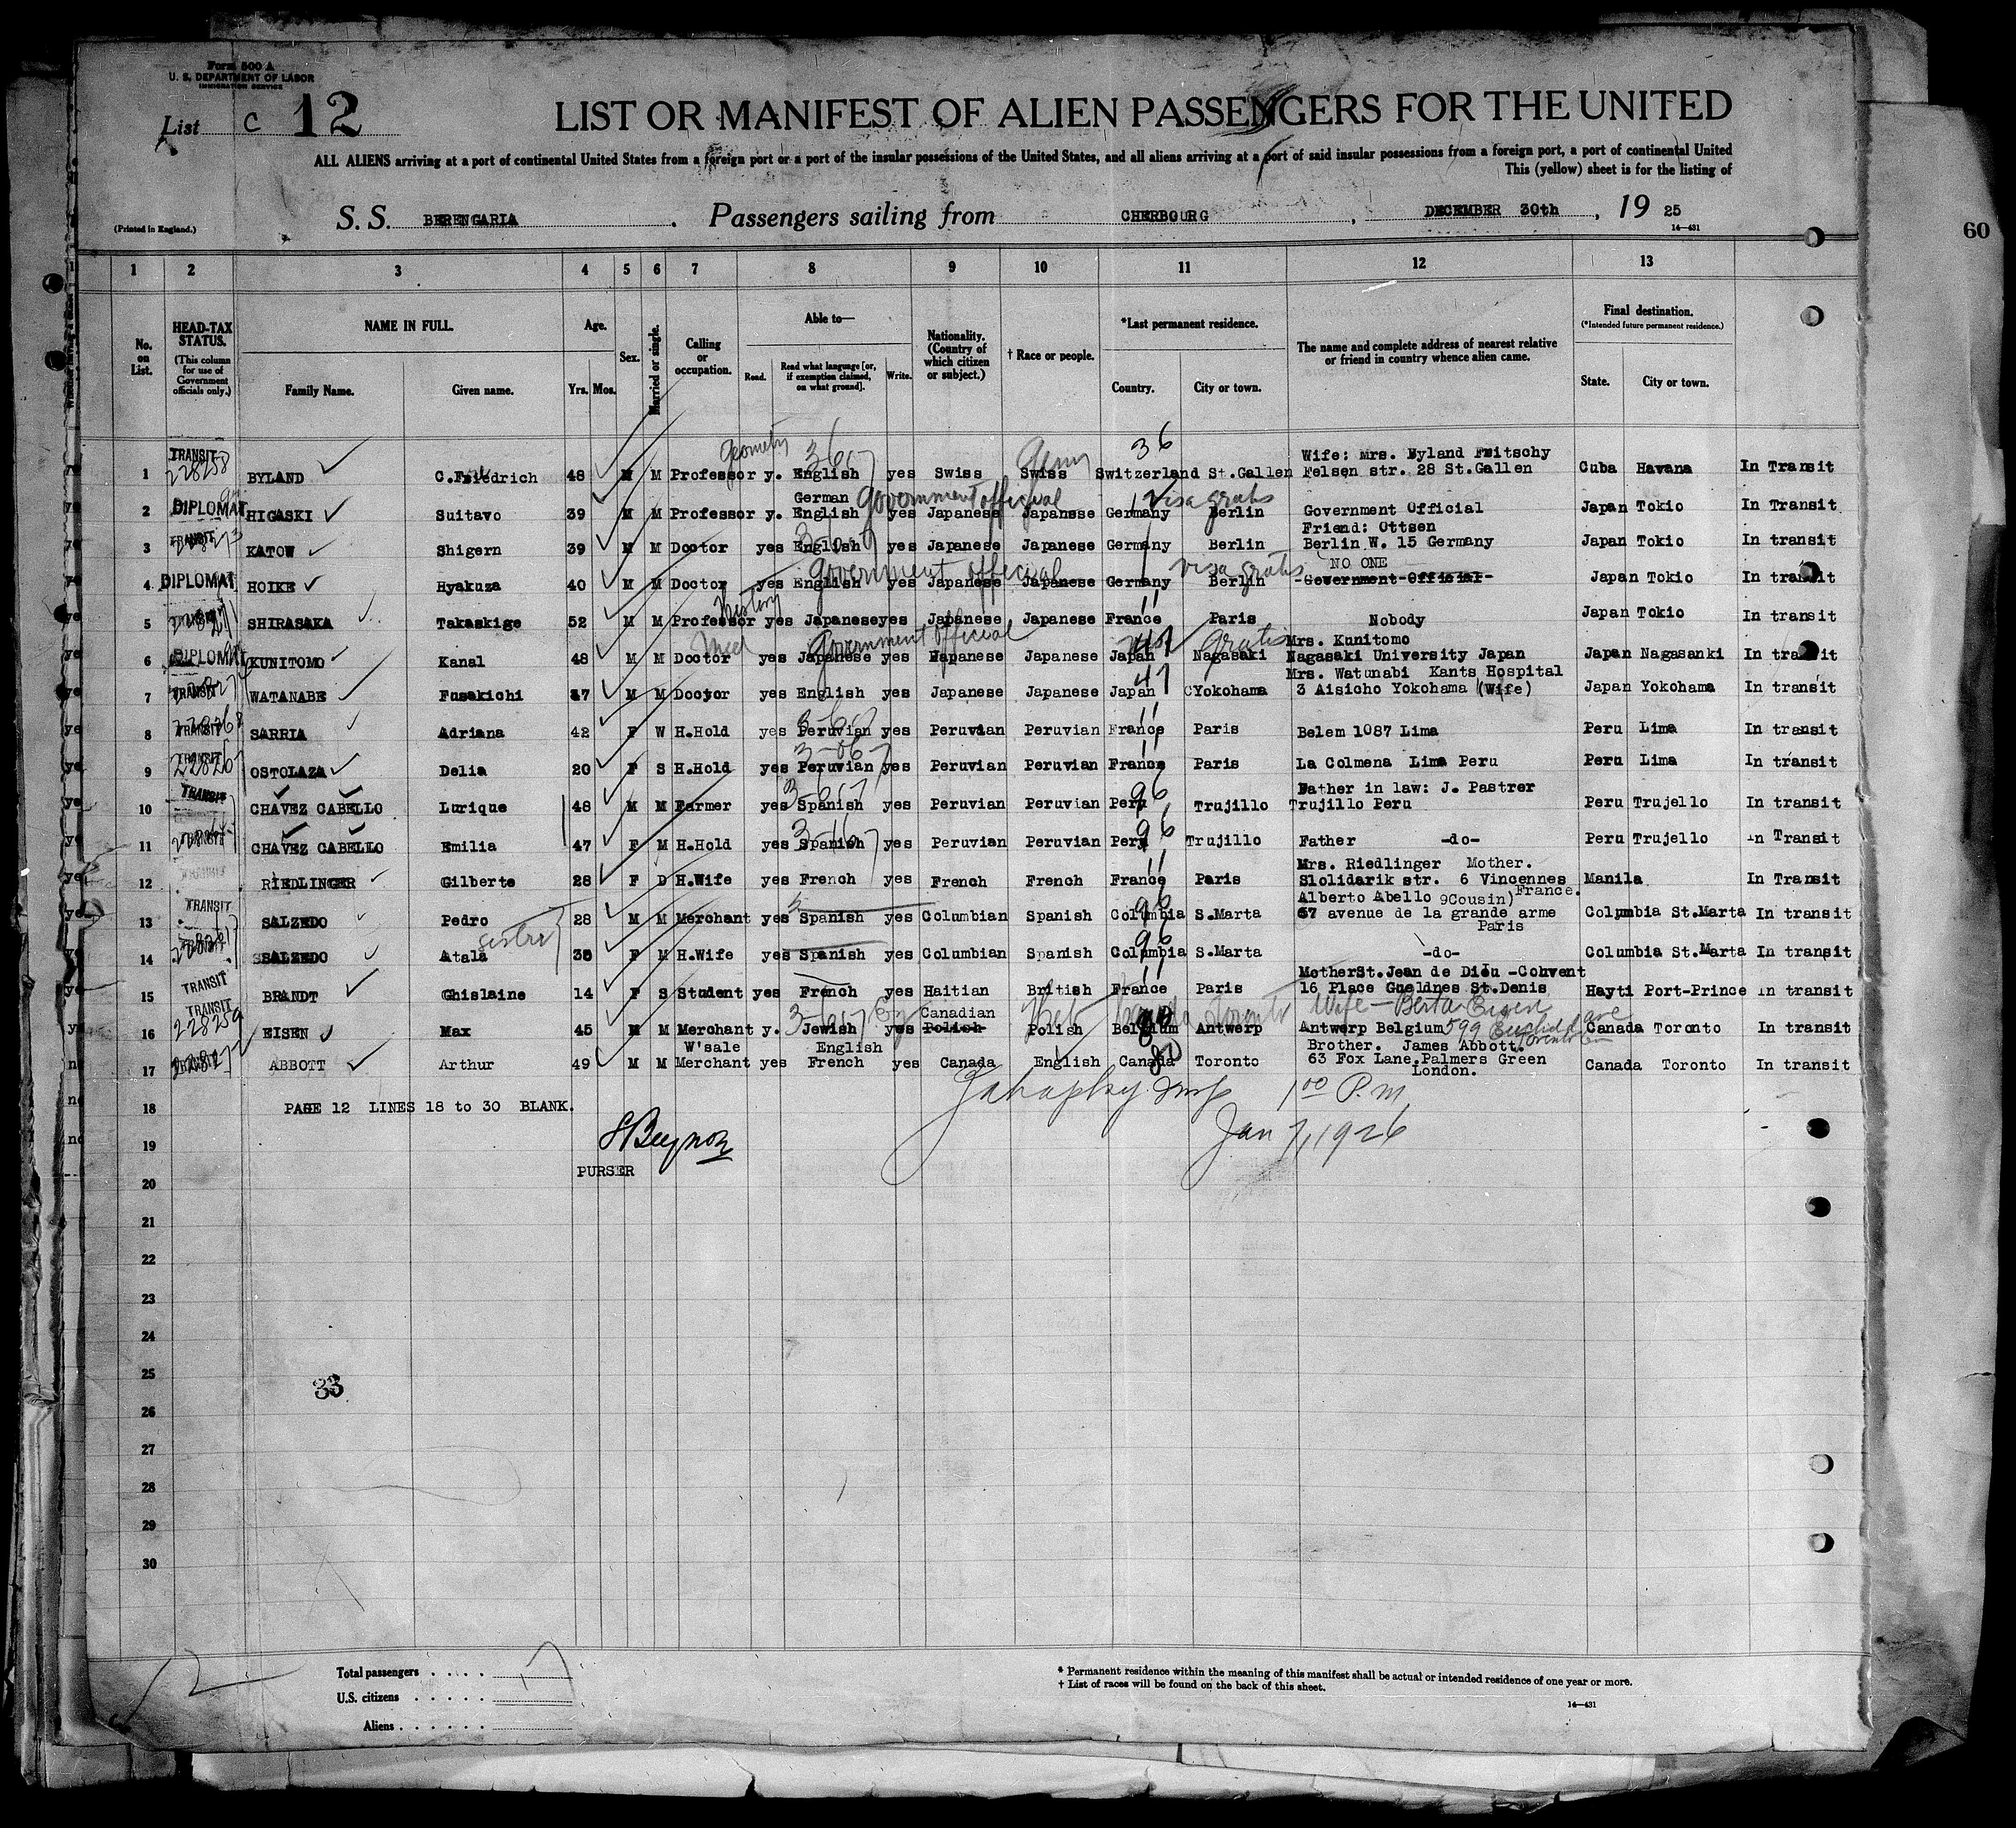 Form 500 A
U. S. DEPARTMENT OF LABOR
IMMIGRATION SERVICE
List C 12
LIST OR MANIFEST OF ALIEN PASSENGERS FOR THE UNITED
ALL ALIENS arriving at a port of continental United States from a foreign port or a port of the insular possessions of the United States, and all aliens arriving at a port of said insular possessions from a foreign port, a port of continental United
This (yellow) sheet is for the listing of
(Printed in England.)
S.S. BERENGARIA . Passengers sailing from CHERBOURG , DECEMBER 30th , 19 25
14—431
60
1 2 3 4 5 6 7 8 9 10 11 12 13
No. on List.
HEAD-TAX STATUS.
(This column for use of Government officials only.)
NAME IN FULL.
Family Name. Given name.
Age.
Yrs. Mos.
Sex.
Married or single.
Calling or occupation.
Able to—
Read. Read what language [or, if exemption claimed, on what ground]. Write.
Nationality. (Country of which citizen or subject.)
† Race or people.
*Last permanent residence.
Country. City or town.
The name and complete address of nearest relative or friend in country whence alien came.
Final destination.
(*Intended future permanent residence.)
State. City or town.
geometry 36 Germ 36
TRANSIT 228258 Wife: Mrs. Byland Fritschy
1 BYLAND C.Friedrich 48 M M Professor y. English yes Swiss Swiss Switzerland St.Gallen Felsen str. 28 St.Gallen Cuba Havana In Transit
German Government official visa gratis
2 DIPLOMAT HIGASKI Suitavo 39 M M Professor y. English yes Japanese Japanese Germany Berlin Government Official Japan Tokio In Transit
TRANSIT Friend: Ottsen
3 KATOW Shigern 39 M M Doctor yes English yes Japanese Japanese Germany Berlin Berlin W. 15 Germany Japan Tokio In transit
Government official visa gratis NO ONE
4 DIPLOMAT HOIKE Hyakuza 40 M M Doctor yes English yes Japanese Japanese Germany Berlin -Government-Official- Japan Tokio In transit
History 11
5 TRANSIT SHIRASAKA Takaskige 52 M M Professor yes Japanese yes Japanese Japanese France Paris Nobody Japan Tokio In transit
Med Government Official gratis Mrs. Kunitomo
6 DIPLOMAT KUNITOMO Kanal 48 M M Doctor yes Japanese yes Japanese Japanese Japan Nagasaki Nagasaki University Japan Japan Nagasanki In transit
47 Mrs. Watunabi Kants Hospital
7 TRANSIT WATANABE Fusakichi 37 M M Doctor yes English yes Japanese Japanese Japan Yokohama 3 Aisioho Yokohama (Wife) Japan Yokohama In transit
11
8 TRANSIT SARRIA Adriana 42 F W H.Hold yes Peruvian yes Peruvian Peruvian France Paris Belem 1087 Lima Peru Lima In transit
11
9 TRANSIT OSTOLAZA Delia 20 F S H.Hold yes Peruvian yes Peruvian Peruvian France Paris La Colmena Lima Peru Peru Lima In transit
TRANSIT 96 Father in law: J. Pastrer
10 CHAVEZ CABELLO Lurique 48 M M Farmer yes Spanish yes Peruvian Peruvian Peru Trujillo Trujillo Peru Peru Trujello In transit
96
11 TRANSIT CHAVEZ CABELLO Emilia 47 F M H.Hold yes Spanish yes Peruvian Peruvian Peru Trujillo Father -do- Peru Trujello In Transit
TRANSIT 11 Mrs. Riedlinger Mother.
12 RIEDLINGER Gilberte 28 F D H.Wife yes French yes French French France Paris Slolidarik str. 6 Vincennes France. Manila In Transit
TRANSIT 96 Alberto Abello 9Cousin)
13 SALZEDO Pedro 28 M M Merchant yes Spanish yes Columbian Spanish Columbia S.Marta 67 avenue de la grande arme Columbia St.Marta In transit
Paris
sister 96
14 SALZEDO Atala 38 F M H.Wife yes Spanish yes Columbian Spanish Columbia S.Marta -do- Columbia St.Marta In transit
TRANSIT 11 Mother St.Jean de Dieu -Convent
15 BRANDT Ghislaine 14 F S Student yes French yes Haitian British France Paris 16 Place Gueldnes St.Denis Hayti Port-Prince In transit
TRANSIT 228259 Canadian Heb Canada Toronto Wife - Berta Eisen
16 EISEN Max 45 M M Merchant y. Jewish yes Polish Polish Belgium Antwerp Antwerp Belgium 599 Euclid ave Toronto Canada Toronto In transit
W'sale English 80 Brother. James Abbott.
17 TRANSIT ABBOTT Arthur 49 M M Merchant yes French yes Canada English Canada Toronto 63 Fox Lane Palmers Green Canada Toronto In transit
London.
18 PAGE 12 LINES 18 to 30 BLANK.
1 00 P.m.
19 Jan 7, 1926
PURSER
20
21
22
23
24
25
33
26
27
28
29
30
12
Total passengers 17
U.S. citizens
Aliens
* Permanent residence within the meaning of this manifest shall be actual or intended residence of one year or more.
† List of races will be found on the back of this sheet.
14—431